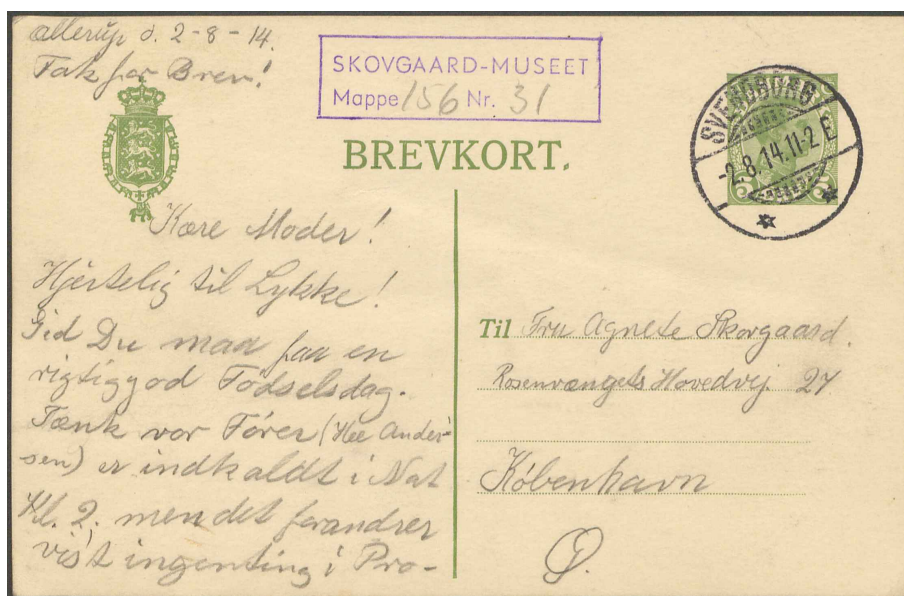 Allerup d. 2-8-14.
Tak for Brev!
SKOVGAARD-MUSEET
Mappe 156 Nr. 31
BREVKORT.
SVENDBORG
-2.8.14.11-2 E
5 5
Kære Moder!
Hjertelig til Lykke!
Gid Du maa faa en
rigtig god Födselsdag.
Tænk vor Förer (Hee Ander-
sen) er indkaldt i Nat
Kl. 2. men det forandrer
vist ingenting i Pro-
Til Fru Agnete Skovgaard.
Rosenvængets Hovedvej 27
København
Ø.